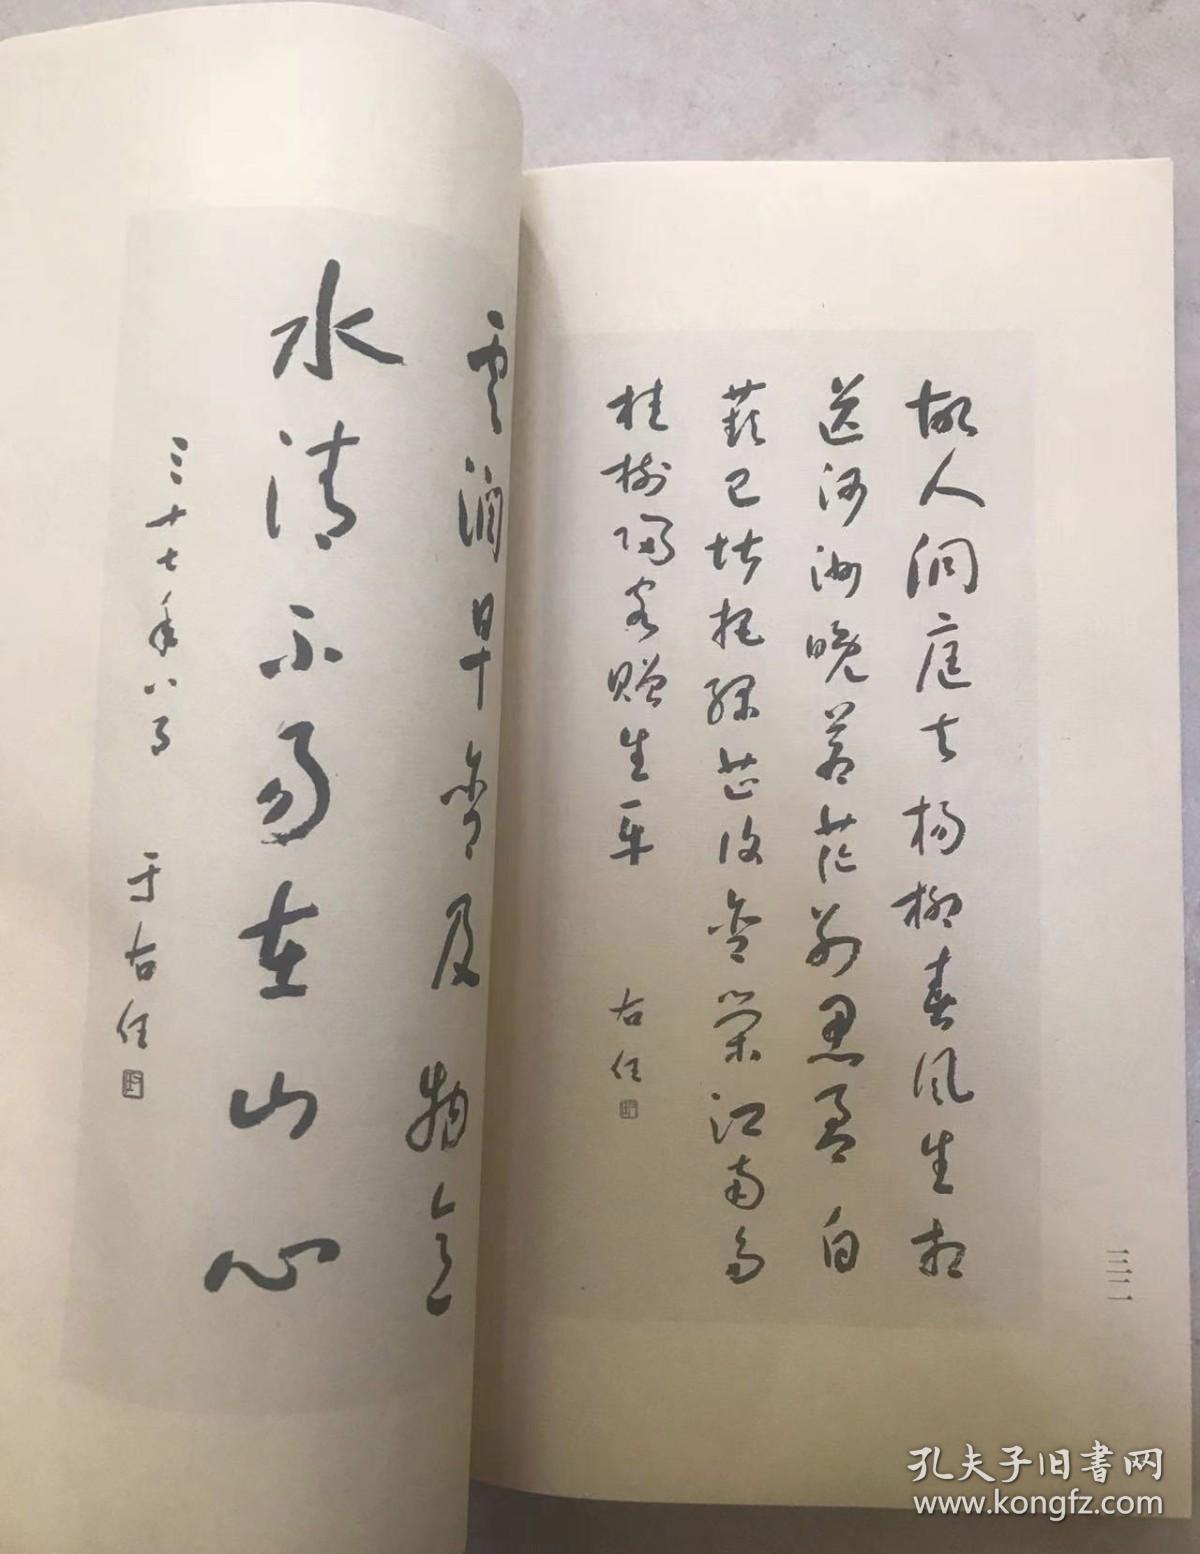 故人洞庭去楊柳春風生相
送河洲晚蒼茫別思盈白
蘋已堪把綠芷復含榮江南多
桂樹歸客贈生平
右任
雲潤早含及物意
水清不易在山心
三十七年八月 于右任
孔夫子旧書网
www.kongfz.com